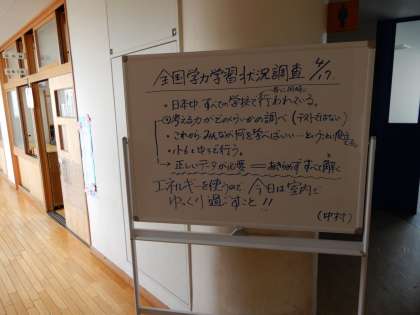 全国学力学習状況調査 4/17
・日本中すべての学校で行われている。
①考える力がどのくらいかの調べ (テストではない)
・これからみんなが何を学べばいい…という
・小6と中3で行う。
正しいデータが必要 ＝ あきらめず すべて解く
エネルギーを使うので 今日は室内で
ゆっくり過ごすこと!!
(中村)